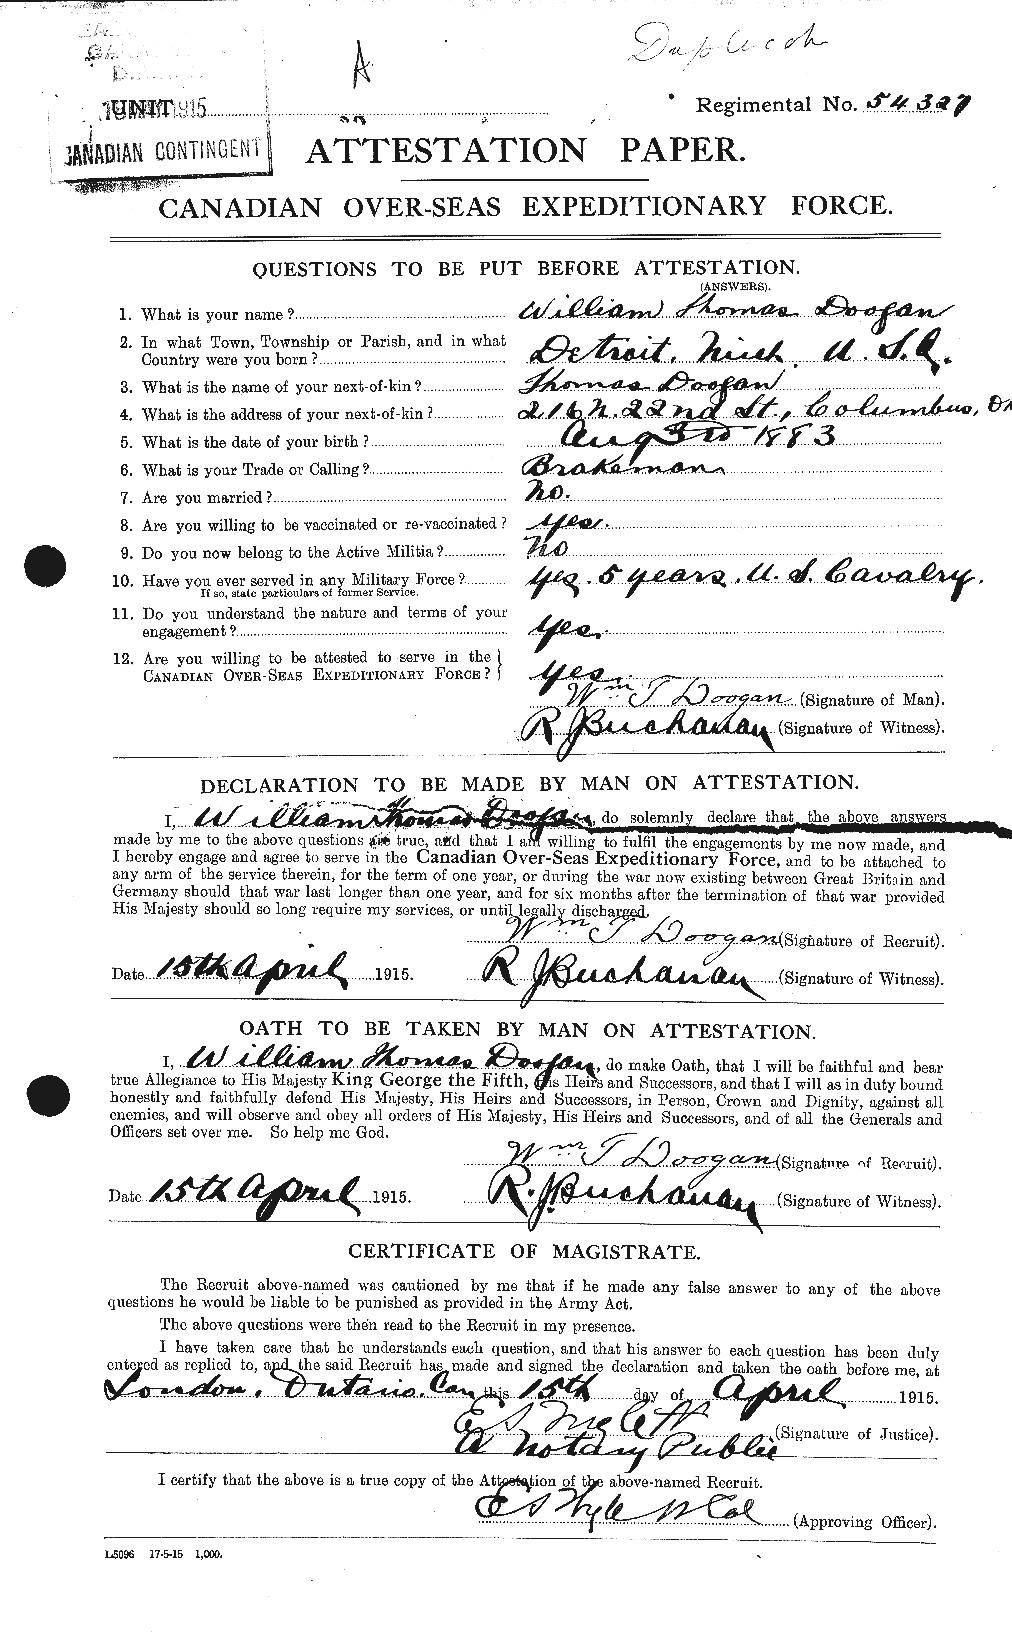 Duplicate
A
UNIT 1915
Regimental No. 54327
CANADIAN CONTINGENT
ATTESTATION PAPER.
CANADIAN OVER-SEAS EXPEDITIONARY FORCE.
QUESTIONS TO BE PUT BEFORE ATTESTATION.
(ANSWERS).
1. What is your name? William Thomas Doogan
2. In what Town, Township or Parish, and in what
Country were you born? Detroit, Mich. U. S. A.
3. What is the name of your next-of-kin? Thomas Doogan
4. What is the address of your next-of-kin? 216 N. 22nd St., Columbus, Oh
5. What is the date of your birth? Aug 3rd 1883
6. What is your Trade or Calling? Brakeman
7. Are you married? No.
8. Are you willing to be vaccinated or re-vaccinated? Yes.
9. Do you now belong to the Active Militia? No
10. Have you ever served in any Military Force? Yes. 5 years. U. S. Cavalry.
If so, state particulars of former Service.
11. Do you understand the nature and terms of your
engagement? Yes.
12. Are you willing to be attested to serve in the
CANADIAN OVER-SEAS EXPEDITIONARY FORCE? Yes.
Wm T Doogan (Signature of Man).
R J Buchanan (Signature of Witness).
DECLARATION TO BE MADE BY MAN ON ATTESTATION.
I, William Thomas Doogan, do solemnly declare that the above answers
made by me to the above questions are true, and that I am willing to fulfil the engagements by me now made, and
I hereby engage and agree to serve in the Canadian Over-Seas Expeditionary Force, and to be attached to
any arm of the service therein, for the term of one year, or during the war now existing between Great Britain and
Germany should that war last longer than one year, and for six months after the termination of that war provided
His Majesty should so long require my services, or until legally discharged.
Wm T Doogan (Signature of Recruit).
Date 15th April 1915. R J Buchanan (Signature of Witness).
OATH TO BE TAKEN BY MAN ON ATTESTATION.
I, William Thomas Doogan, do make Oath, that I will be faithful and bear
true Allegiance to His Majesty King George the Fifth, His Heirs and Successors, and that I will as in duty bound
honestly and faithfully defend His Majesty, His Heirs and Successors, in Person, Crown and Dignity, against all
enemies, and will observe and obey all orders of His Majesty, His Heirs and Successors, and of all the Generals and
Officers set over me. So help me God.
Wm T Doogan (Signature of Recruit).
Date 15th April 1915. R. J. Buchanan (Signature of Witness).
CERTIFICATE OF MAGISTRATE.
The Recruit above-named was cautioned by me that if he made any false answer to any of the above
questions he would be liable to be punished as provided in the Army Act.
The above questions were then read to the Recruit in my presence.
I have taken care that he understands each question, and that his answer to each question has been duly
entered as replied to, and the said Recruit has made and signed the declaration and taken the oath before me, at
London, Ontario. Can this 15th day of April 1915.
E S (Signature of Justice).
A Notary Public
I certify that the above is a true copy of the Attestation of the above-named Recruit.
E S (Approving Officer).
L5096 17-5-15 1,000.